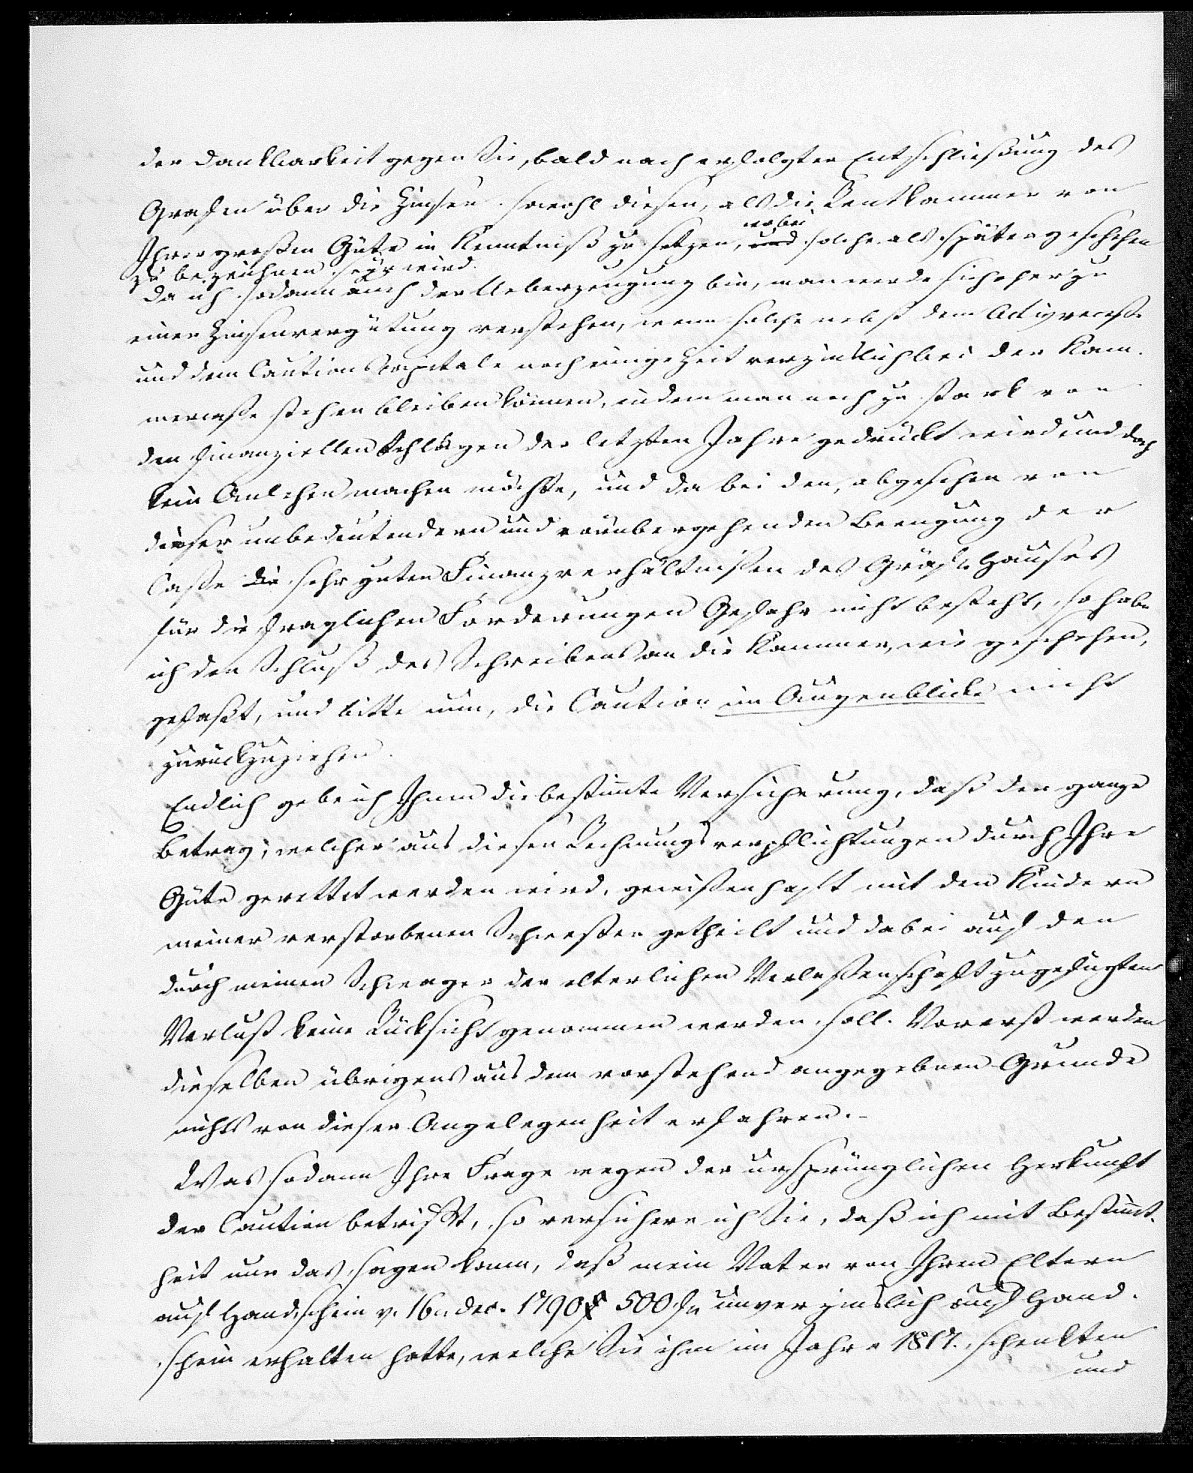 der Dankbarkeit gegen Sie, bald nach erfolgter Entschließung des
Grafen über die Zinsen sowohl diesen, als die Rentkammer von
Ihrer großen Güte in Kenntniß zu setzen, und wobei solche als später geschehen
zu bezeichnen seyn wird.
Da ich sodann auch der Ueberzeugung bin, man werde sich eher zu
einer Zinsenvergütung verstehen, wenn solche nebst dem Activrecesse
und dem Cautions Capitale noch einige Zeit verzinslich bei der Kam-
mercasse stehen bleiben können, indem man noch zu stark von
den finanziellen Schlägen der letzten Jahre gedruckt wird und doch
kein Anlehen machen möchte, und da bei den, abgesehen von
dieser unbedeutendern und vorübergehenden Beengung der
Casse die sehr guten Finanzverhältnissen des Gräfl. Hauses
für die fraglichen Forderungen Gefahr nicht besteht, so habe
ich den Schluß des Schreibens an die Kammer, wie geschehen,
gefaßt, und bitte nun, die Caution im Augenblicke nicht
zurückzuziehen.
Endlich gebe ich Ihnen die bestimte Versicherung, daß der ganze
Betrag, welcher aus diesen Rechnungsverpflichtungen durch Ihre
Güte gerettet werden wird, gewissenhaft mit den Kindern
meiner verstorbenen Schwester getheilt und dabei auf den
durch meinen Schwager der elterlichen Verlassenschaft zugefügten
Verlust keine Rücksicht genommen werden soll. Vorerst werden
dieselben übrigens aus dem vorstehend angegebenen Grunde
nichts von dieser Angelegenheit erfahren.-
Was sodann Ihre Frage wegen der ursprünglichen Herkunft
der Caution betrifft, so versichere ich Sie, daß ich mit Bestimt-
heit nur das sagen kann, daß mein Vater von Ihren Eltern
auf Handschein v. 16. Dec. 1790 500 f. unverzinslich auf Hand-
schein erhalten hatte, welche Sie ihm im Jahre 1817. schenkten
und